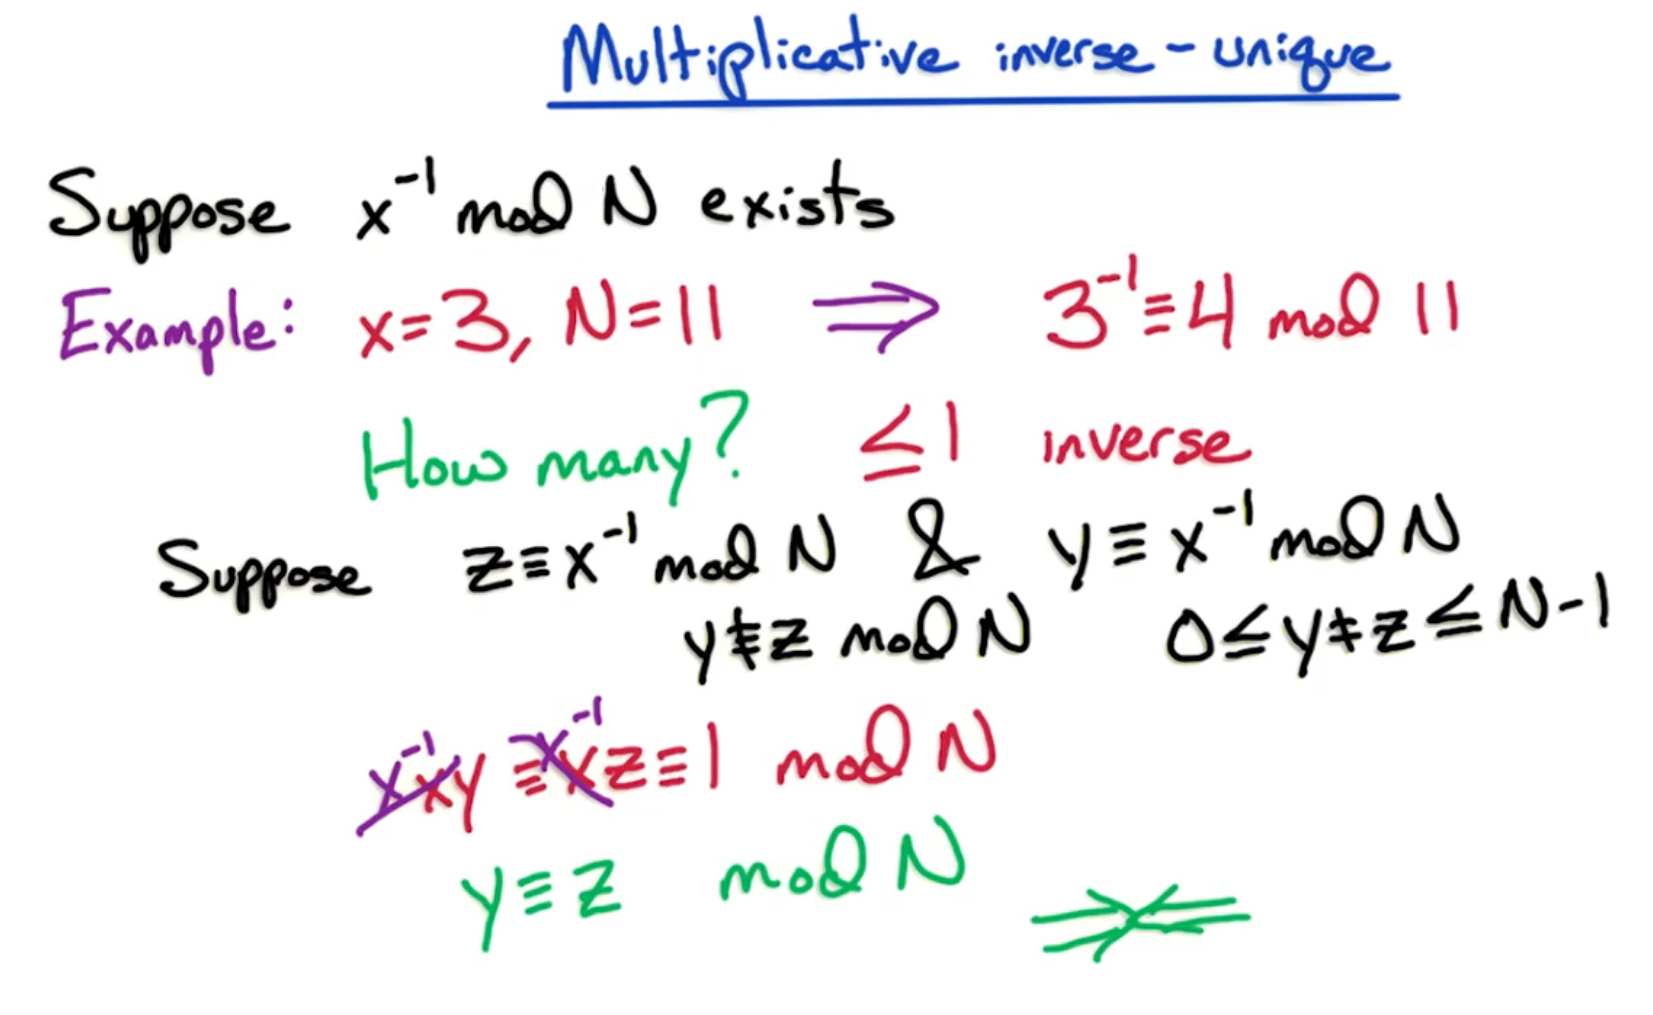 Multiplicative inverse - unique
Suppose x⁻¹ mod N exists
Example: x=3, N=11 ⟹ 3⁻¹≡4 mod 11
How many? ≤1 inverse
Suppose z≡x⁻¹ mod N & y≡x⁻¹ mod N
y≢z mod N 0≤y≠z≤N-1
x⁻¹xy≡x⁻¹xz≡1 mod N
y≡z mod N ⇒⇐